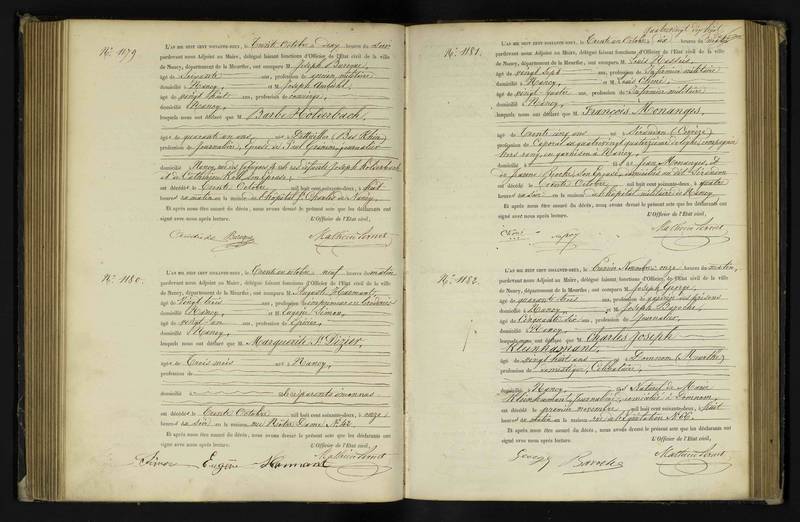 N.º 1179
L'AN MIL HUIT CENT SOIXANTE-DEUX, le Trente Octobre à deux heures du soir
pardevant nous Adjoint au Maire, délégué faisant fonctions d'Officier de l'Etat civil de la ville
de Nancy, département de la Meurthe, ont comparu M. Joseph
âgé de Soixante ans, profession de ancien militaire
domicilié à Nancy, et M. Joseph
âgé de vingt huit ans, profession de concierge,
domicilié à Nancy,
lesquels nous ont déclaré que M. Barbe Holderbach,
âgée de quarante un ans, née à (Bas Rhin)
profession de journalière, Epouse de Paul journalier
domiciliée à Nancy, Joseph Holderbach
et de Catherine Koll, son Epouse,
est décédée le Trente Octobre mil huit cent soixante-deux, à huit
heures du matin en la maison de l'hôpital St Charles de Nancy.
Et après nous être assuré du décès, nous avons dressé le présent acte que les déclarants ont
signé avec nous après lecture. L'Officier de l'Etat civil,
N.º 1180
L'AN MIL HUIT CENT SOIXANTE-DEUX, le Trente un octobre neuf heures du matin
pardevant nous Adjoint au Maire, délégué faisant fonctions d'Officier de l'Etat civil de la ville
de Nancy, département de la Meurthe, ont comparu M. Auguste Hamant,
âgé de Vingt trois ans, profession
domicilié à Nancy, et M. Eugène Simon,
âgé de vingt un ans, profession de épicier,
domicilié à Nancy,
lesquels nous ont déclaré que M. Marguerite St Dizier,
âgée de Trois mois née à Nancy,
profession de
domiciliée à
est décédée le Trente Octobre mil huit cent soixante-deux, à onze
heures du soir en la maison rue Notre Dame N.º 42.
Et après nous être assuré du décès, nous avons dressé le présent acte que les déclarants ont
signé avec nous après lecture. L'Officier de l'Etat civil,
Simon Eugène Hamant
N.º 1181
L'AN MIL HUIT CENT SOIXANTE-DEUX, le Trente un Octobre dix heures du matin
pardevant nous Adjoint au Maire, délégué faisant fonctions d'Officier de l'Etat civil de la ville
de Nancy, département de la Meurthe, ont comparu M. Louis
âgé de vingt sept ans, profession de Infirmier militaire
domicilié à Nancy, et M. Louis
âgé de vingt quatre ans, profession de Infirmier militaire
domicilié à Nancy,
lesquels nous ont déclaré que M. François Monanges,
âgé de Trente cinq ans né à (Corrèze)
profession de Caporal au quatrevingt quatorzième de ligne, compagnie
hors rang, en garnison à Nancy,
domicilié à fils de Jean Monanges, et
de Jeanne son Epouse, domiciliés au dit
est décédé le Trente Octobre mil huit cent soixante-deux, à quatre
heures du soir en la maison de l'hôpital militaire de Nancy
Et après nous être assuré du décès, nous avons dressé le présent acte que les déclarants ont
signé avec nous après lecture. L'Officier de l'Etat civil,
N.º 1182
L'AN MIL HUIT CENT SOIXANTE-DEUX, le Premier Novembre onze heures du matin,
pardevant nous Adjoint au Maire, délégué faisant fonctions d'Officier de l'Etat civil de la ville
de Nancy, département de la Meurthe, ont comparu M. Joseph George,
âgé de quarante trois ans, profession de gardien des prisons
domicilié à Nancy, et M. Joseph Baroche,
âgé de Cinquante six ans, profession de Journalier,
domicilié à Nancy,
lesquels nous ont déclaré que M. Charles Joseph
Kleinhamant,
âgé de vingt huit ans né à Domnom (Meurthe)
profession de domestique, Célibataire,
domicilié à Nancy, fils Naturel de Marie
Kleinhamant, Journalière, domiciliée à Domnom,
est décédé le premier novembre mil huit cent soixante-deux, à huit
heures du matin en la maison rue de l'Equitation N.º
Et après nous être assuré du décès, nous avons dressé le présent acte que les déclarants ont
signé avec nous après lecture. L'Officier de l'Etat civil,
George Baroche